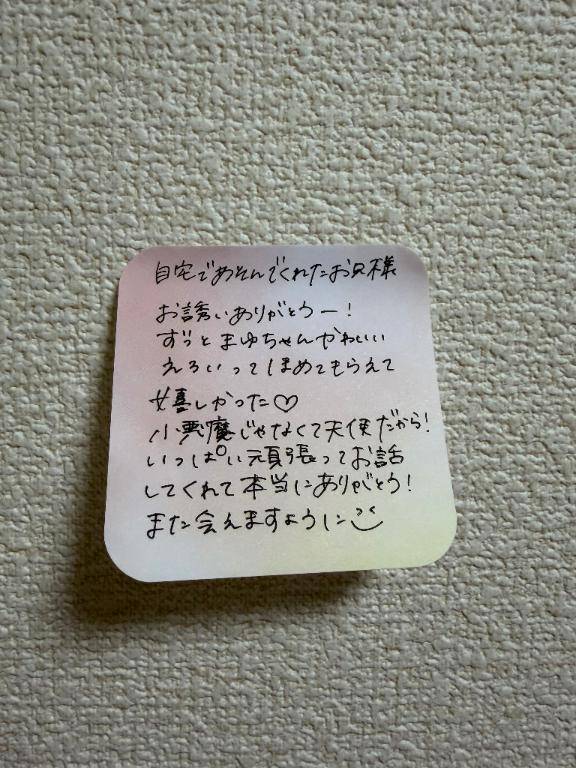 自宅であそんでくれたお兄様
お誘いありがとうー！
ずっとまゆちゃんかわいい
えろいってほめてもらえて
嬉しかった♡
小悪魔じゃなくて天使だから！
いっぱい頑張ってお話
してくれて本当にありがとう！
また会えますように